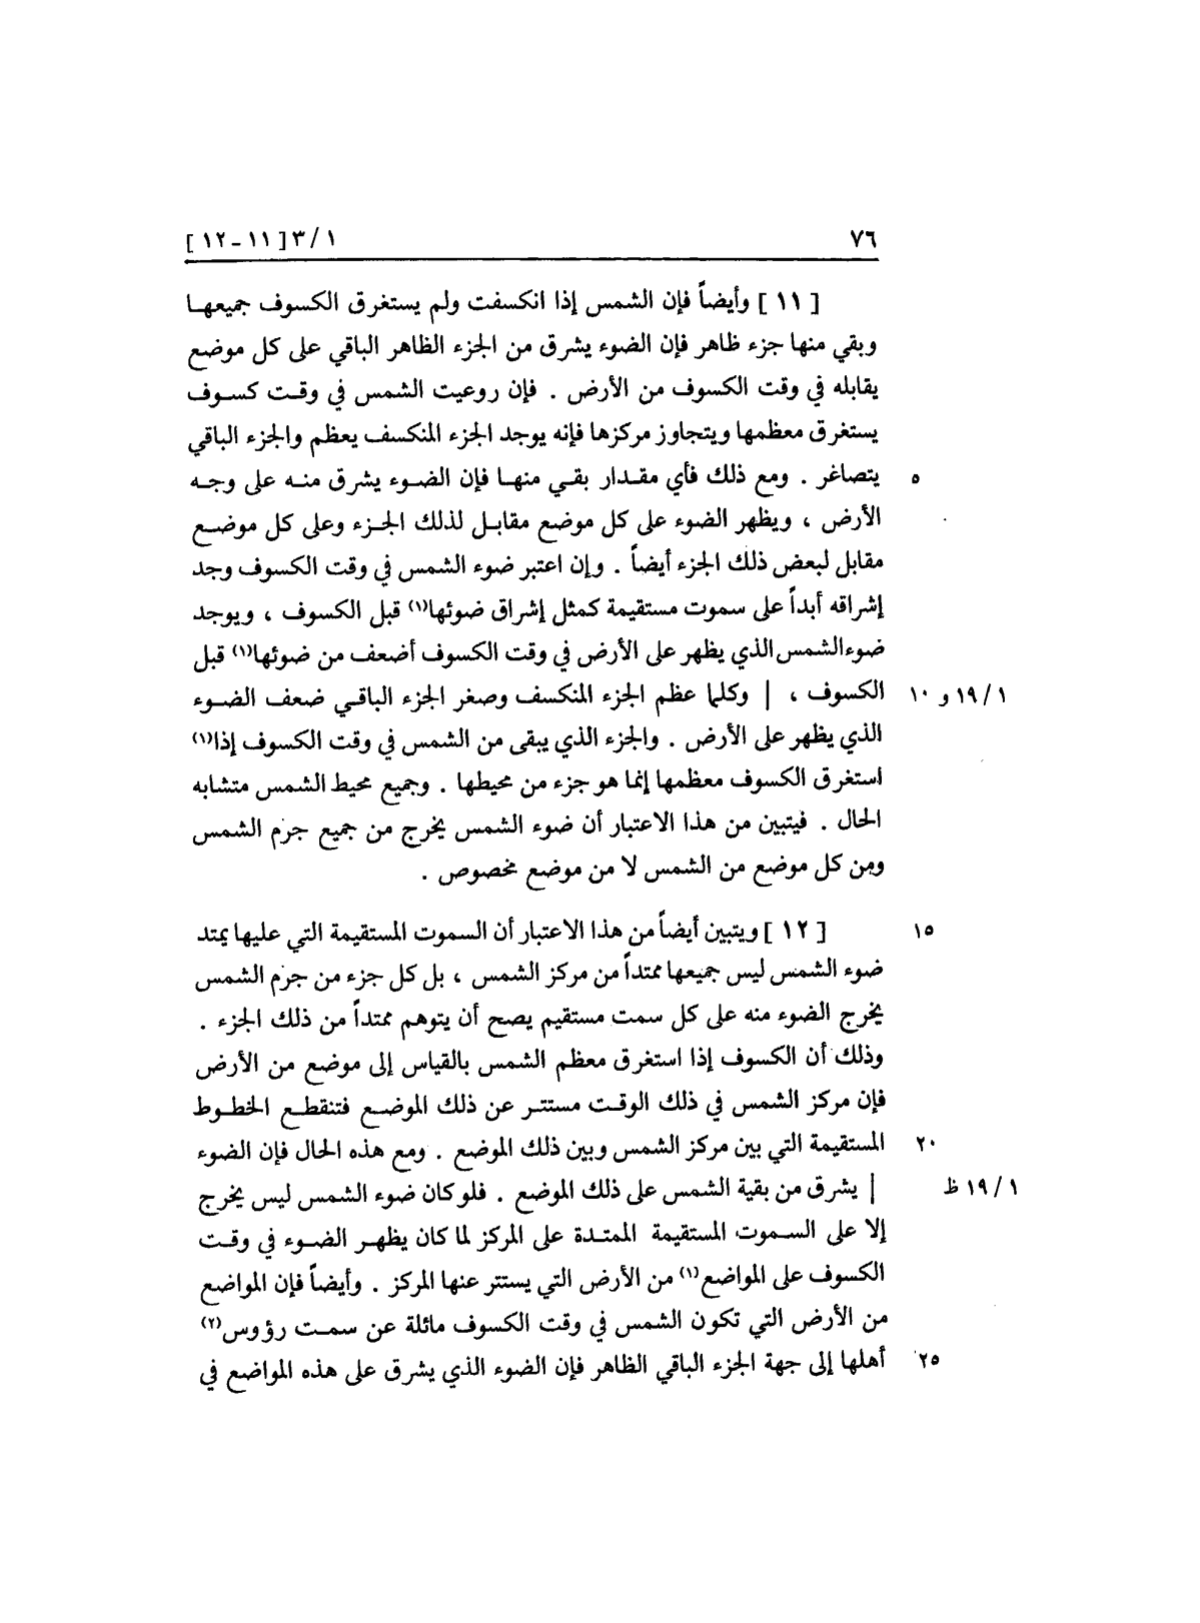 ٧٦ ١/٣ [ ١١ – ١٢ ]
[ ١١ ] وأيضاً فإن الشمس إذا انكسفت ولم يستغرق الكسوف جميعهـا
وبقي منها جزء ظاهر فإن الضوء يشرق من الجزء الظاهر الباقي على كل موضع
يقابله في وقت الكسوف من الأرض . فإن روعيت الشمس في وقـت كسـوف
يستغرق معظمها ويتجاوز مركزها فإنه يوجد الجزء المنكسف يعظم والجزء الباقي
٥ يتصاغر . ومع ذلك فأي مقـدار بقـي منهـا فإن الضـوء يشرق منـه على وجـه
الأرض ، ويظهر الضوء على كل موضع مقابـل لذلك الجـزء وعلى كل موضـع
مقابل لبعض ذلك الجزء أيضاً . وإن اعتبر ضوء الشمس في وقت الكسوف وجد
إشراقه أبداً على سموت مستقيمة كمثل إشراق ضوئها(١) قبل الكسوف ، ويوجد
ضوء الشمس الذي يظهر على الأرض في وقت الكسوف أضعف من ضوئها(١) قبل
١/١٩ و ١٠ الكسوف ، | وكلما عظم الجزء المنكسف وصغر الجزء الباقـي ضعف الضـوء
الذي يظهر على الأرض . والجزء الذي يبقى من الشمس في وقت الكسوف إذا(١)
استغرق الكسوف معظمها إنما هو جزء من محيطها . وجميع محيط الشمس متشابه
الحال . فيتبين من هذا الاعتبار أن ضوء الشمس يخرج من جميع جرم الشمس
ومن كل موضع من الشمس لا من موضع مخصوص .
١٥ [ ١٢ ] ويتبين أيضاً من هذا الاعتبار أن السموت المستقيمة التي عليها يمتد
ضوء الشمس ليس جميعها ممتداً من مركز الشمس ، بل كل جزء من جرم الشمس
يخرج الضوء منه على كل سمت مستقيم يصح أن يتوهم ممتداً من ذلك الجزء .
وذلك أن الكسوف إذا استغرق معظم الشمس بالقياس إلى موضع من الأرض
فإن مركز الشمس في ذلك الوقـت مستتـر عن ذلك الموضـع فتنقطـع الخطـوط
٢٠ المستقيمة التي بين مركز الشمس وبين ذلك الموضع . ومع هذه الحال فإن الضوء
١/١٩ ظ | يشرق من بقية الشمس على ذلك الموضع . فلو كان ضوء الشمس ليس يخرج
إلا على السـموت المستقيمة الممتـدة على المركز لما كان يظهـر الضـوء في وقـت
الكسوف على المواضع(١) من الأرض التي يستتر عنها المركز . وأيضاً فإن المواضع
من الأرض التي تكون الشمس في وقت الكسوف مائلة عن سمـت رؤوس(٢)
٢٥ أهلها إلى جهة الجزء الباقي الظاهر فإن الضوء الذي يشرق على هذه المواضع في